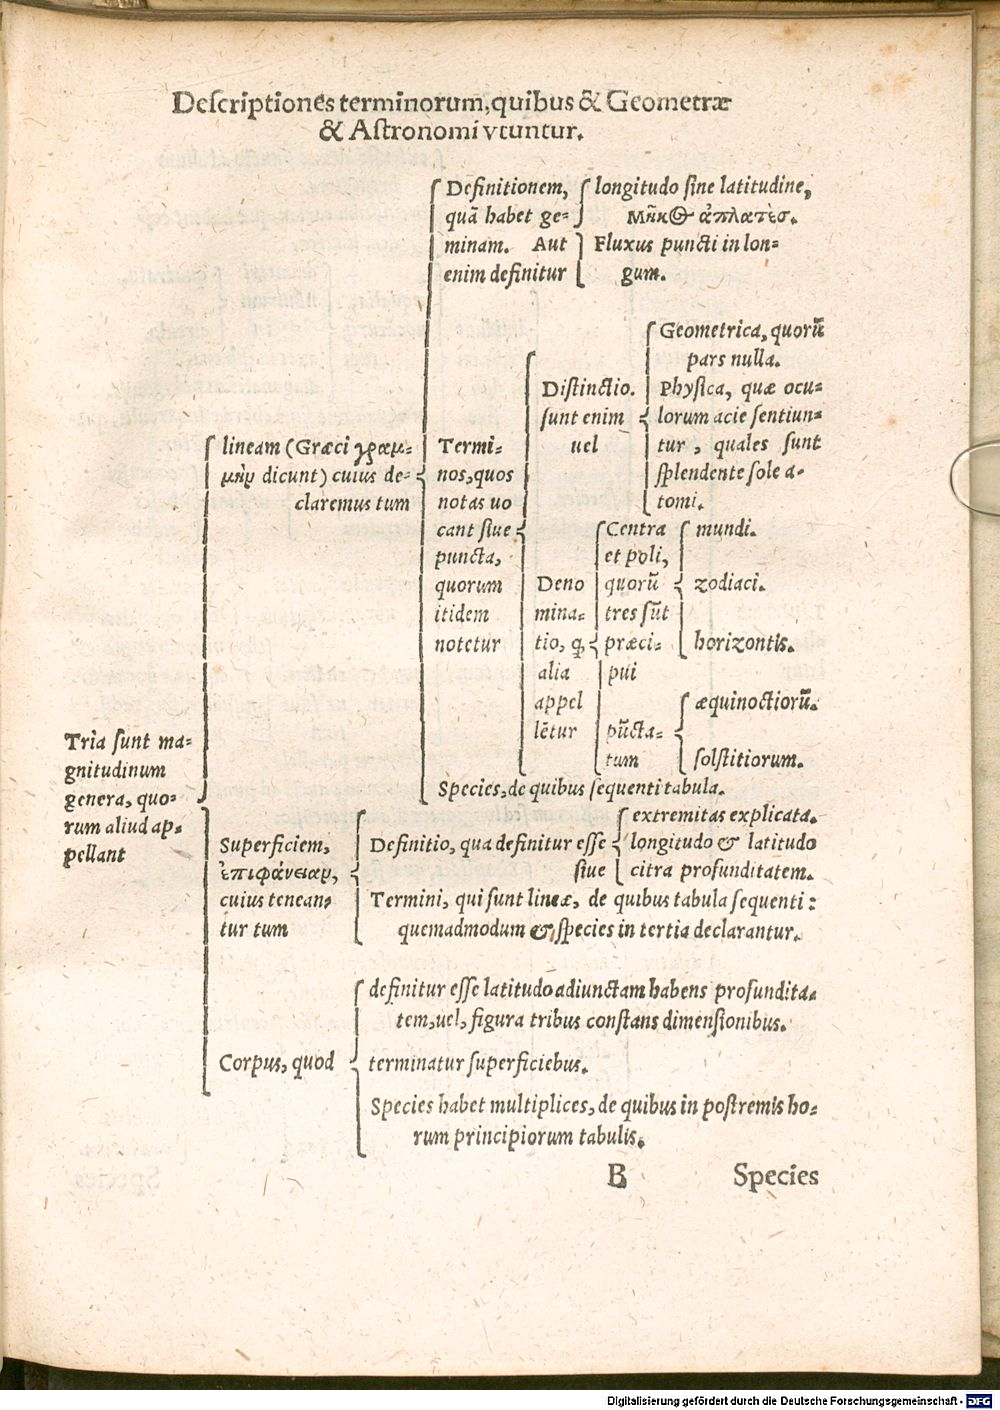 Descriptiones terminorum, quibus & Geometræ
& Astronomi vtuntur.
Tria sunt ma=
gnitudinum
genera, quo=
rum aliud ap=
pellant
lineam (Græci γραμ=
μὴν dicunt) cuius de=
claremus tum
Definitionem,
quā habet ge=
minam. Aut
enim definitur
longitudo sine latitudine,
Μῆκος ἀπλατὲς.
Fluxus puncti in lon=
gum.
Termi=
nos, quos
notas uo
cant siue
puncta,
quorum
itidem
notetur
Distinctio.
sunt enim
uel
Geometrica, quorū
pars nulla.
Physica, quæ ocu=
lorum acie sentiun=
tur, quales sunt
splendente sole a=
tomi.
Deno
mina=
tio, ꝙ
alia
appel
lētur
Centra
et poli,
quorū
tres sūt
præci=
pui
mundi.
zodiaci.
horizontis.
pūcta=
tum
æquinoctiorū.
solstitiorum.
Species, de quibus sequenti tabula.
Superficiem,
ἐπιφάνειαν,
cuius tenean=
tur tum
Definitio, qua definitur esse
siue
extremitas explicata.
longitudo & latitudo
citra profunditatem.
Termini, qui sunt lineæ, de quibus tabula sequenti:
quemadmodum & species in tertia declarantur.
Corpus, quod
definitur esse latitudo adiunctam habens profundita=
tem, uel, figura tribus constans dimensionibus.
terminatur superficiebus.
Species habet multiplices, de quibus in postremis ho=
rum principiorum tabulis.
B Species
Digitalisierung gefördert durch die Deutsche Forschungsgemeinschaft - DFG